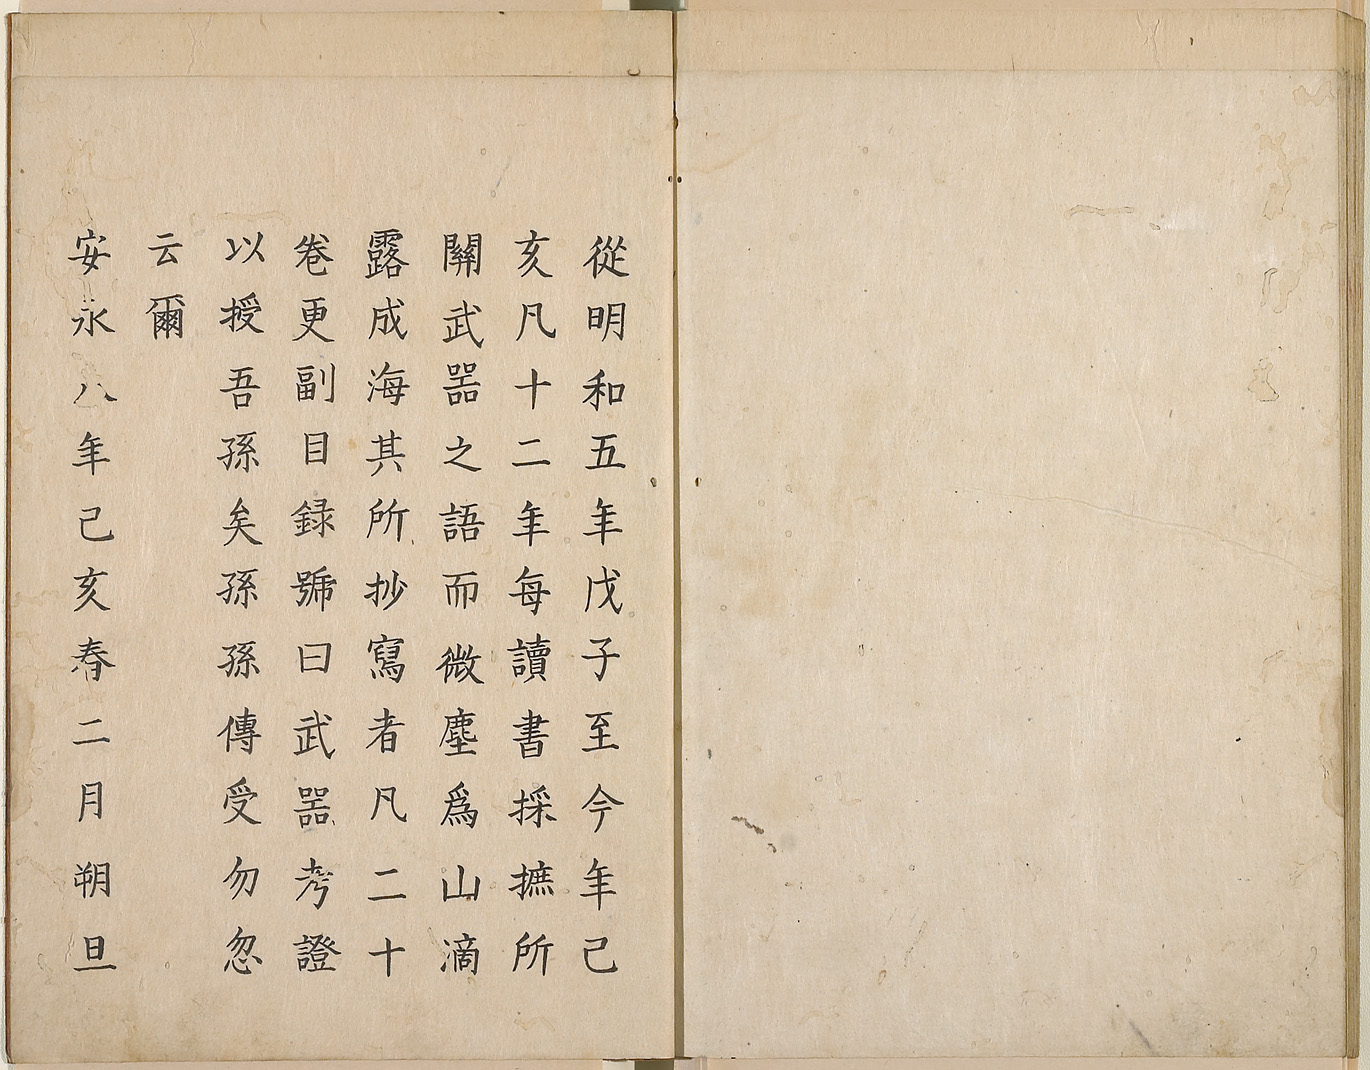 從明和五年戊子至今年己
亥凡十二年每讀書採摭所
關武器之語而微塵爲山滴
露成海其所抄寫者凡二十
卷更副目録號曰武器考證
以授吾孫矣孫孫傳受勿忽
云爾
安永八年己亥春二月朔旦